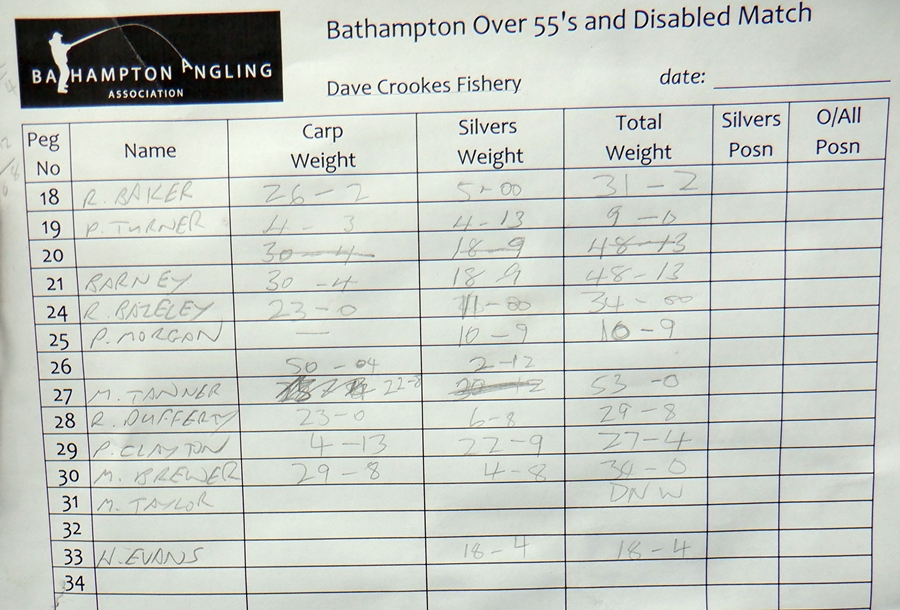 Bathampton Over 55's and Disabled Match
BATHAMPTON ANGLING
ASSOCIATION
Dave Crookes Fishery date:
Peg No Name Carp Weight Silvers Weight Total Weight Silvers Posn O/All Posn
18 R. BAKER 26 - 2 5 - 00 31 - 2
19 P. TURNER 4 - 3 4 - 13 9 - 0
20 30 - 4 18 - 9 48 - 13
21 BARNEY 30 - 4 18 9 48 - 13
24 R. BAZELEY 23 - 0 11 - 00 34 - 00
25 P. MORGAN — 10 - 9 10 - 9
26 50 - 04 2 - 12
27 M. TANNER 53 - 0
28 R. DUFFERTY 23 - 0 6 - 8 29 - 8
29 P. CLAYTON 4 - 13 22 - 9 27 - 4
30 M. BREWER 29 - 8 4 - 8 34 - 0
31 M. TAYLOR DNW
32
33 N. EVANS 18 - 4 18 - 4
34